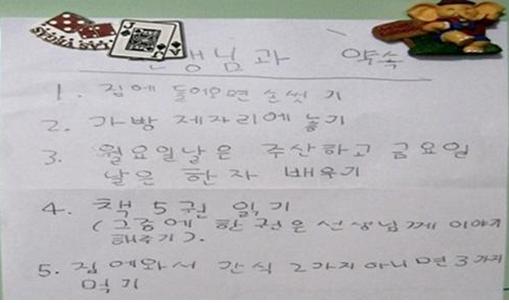 선생님과 약속
1. 집에 들어오면 손씻기
2. 가방 제자리에 놓기
3. 월요일날은 주산하고 금요일
날은 한자 배우기
4. 책 5권 읽기
(그중에 한권은 선생님께 이야기
해주기).
5. 집에와서 간식 2가지아니면 3가지
먹기